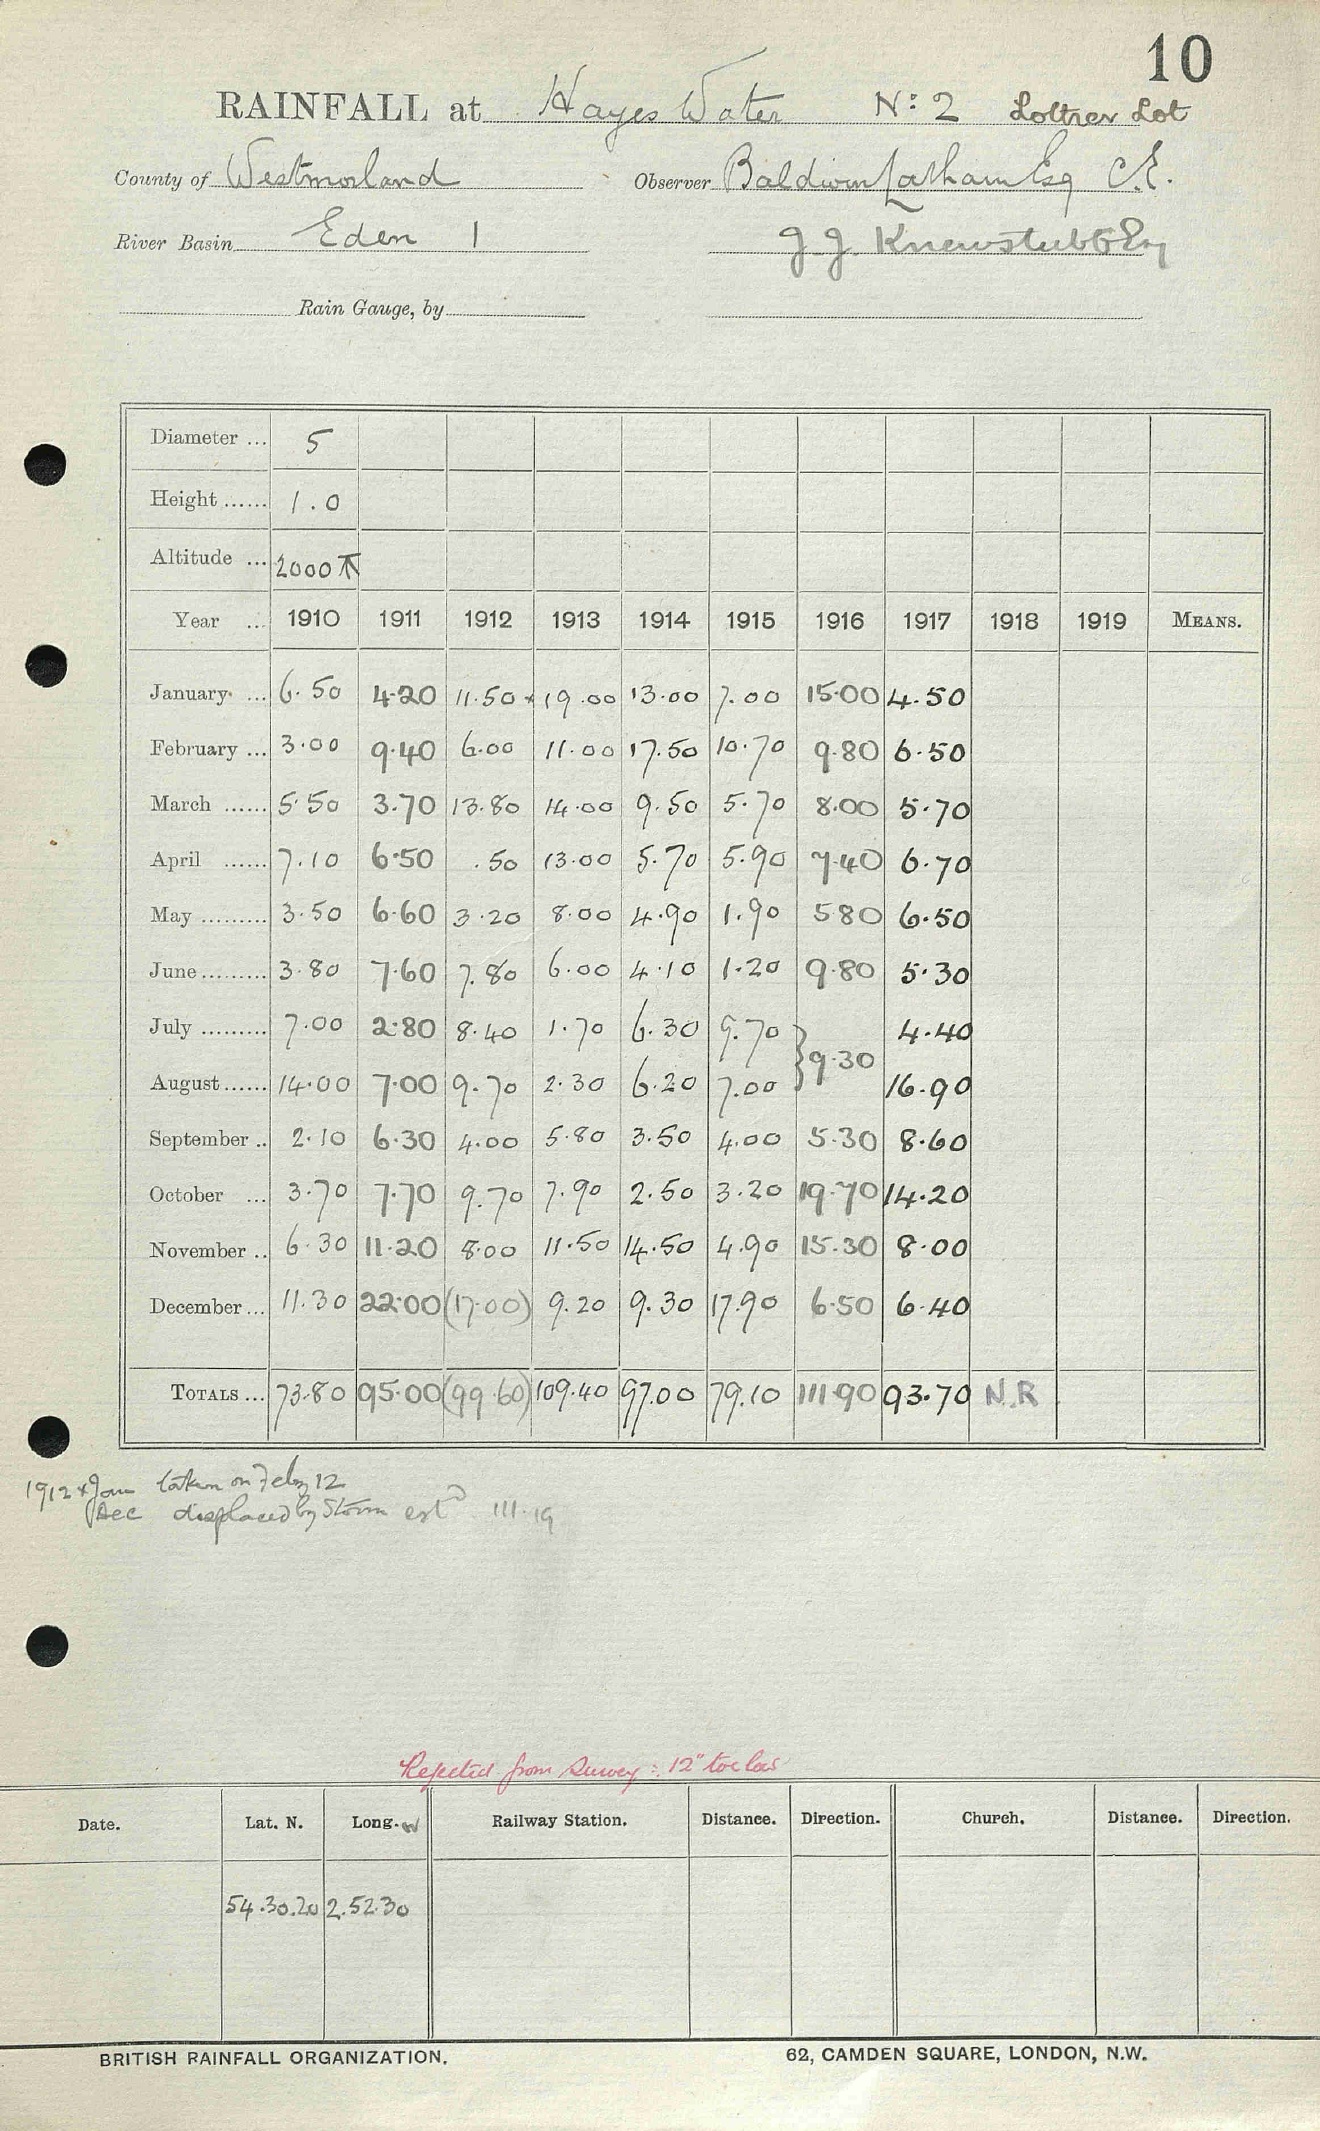 10
RAINFALL at Hayes Water No: 2 Lot
County of Westmorland Observer Baldwin Latham Esq C.E.
River Basin Eden 1 J J Knewstubb Esq
Rain Gauge, by
Diameter ... 5
Height ...... 1.0
Altitude ... 2000
Year ... 1910 1911 1912 1913 1914 1915 1916 1917 1918 1919 MEANS.
January ... 6.50 4.20 11.50 x 19.00 13.00 7.00 15.00 4.50
February ... 3.00 9.40 6.00 11.00 17.50 10.70 9.80 6.50
March ...... 5.50 3.70 13.80 14.00 9.50 5.70 8.00 5.70
April ...... 7.10 6.50 .50 13.00 5.70 5.90 7.40 6.70
May ......... 3.50 6.60 3.20 8.00 4.90 1.90 5 80 6.50
June ......... 3.80 7.60 7.80 6.00 4.10 1.20 9.80 5.30
July ......... 7.00 2.80 8.40 1.70 6.30 9.70 } 9.30 4.40
August ...... 14.00 7.00 9.70 2.30 6.20 7.00 16.90
September .. 2.10 6.30 4.00 5.80 3.50 4.00 5.30 8.60
October ... 3.70 7.70 9.70 7.90 2.50 3.20 19.70 14.20
November .. 6.30 11.20 8.00 11.50 14.50 4.90 15.30 8.00
December ... 11.30 22.00 (17.00) 9.20 9.30 17.90 6.50 6.40
TOTALS ... 73.80 95.00 (99.60) 109.40 97.00 79.10 111.90 93.70 N.R
1912 x Jan taken on Feby 12
Dec displaced by Storm estd 111.19
Rejected from Survey: 12" too low
Date. Lat. N. Long. W Railway Station. Distance. Direction. Church. Distance. Direction.
54.30.20 2.52.30
BRITISH RAINFALL ORGANIZATION. 62, CAMDEN SQUARE, LONDON, N.W.